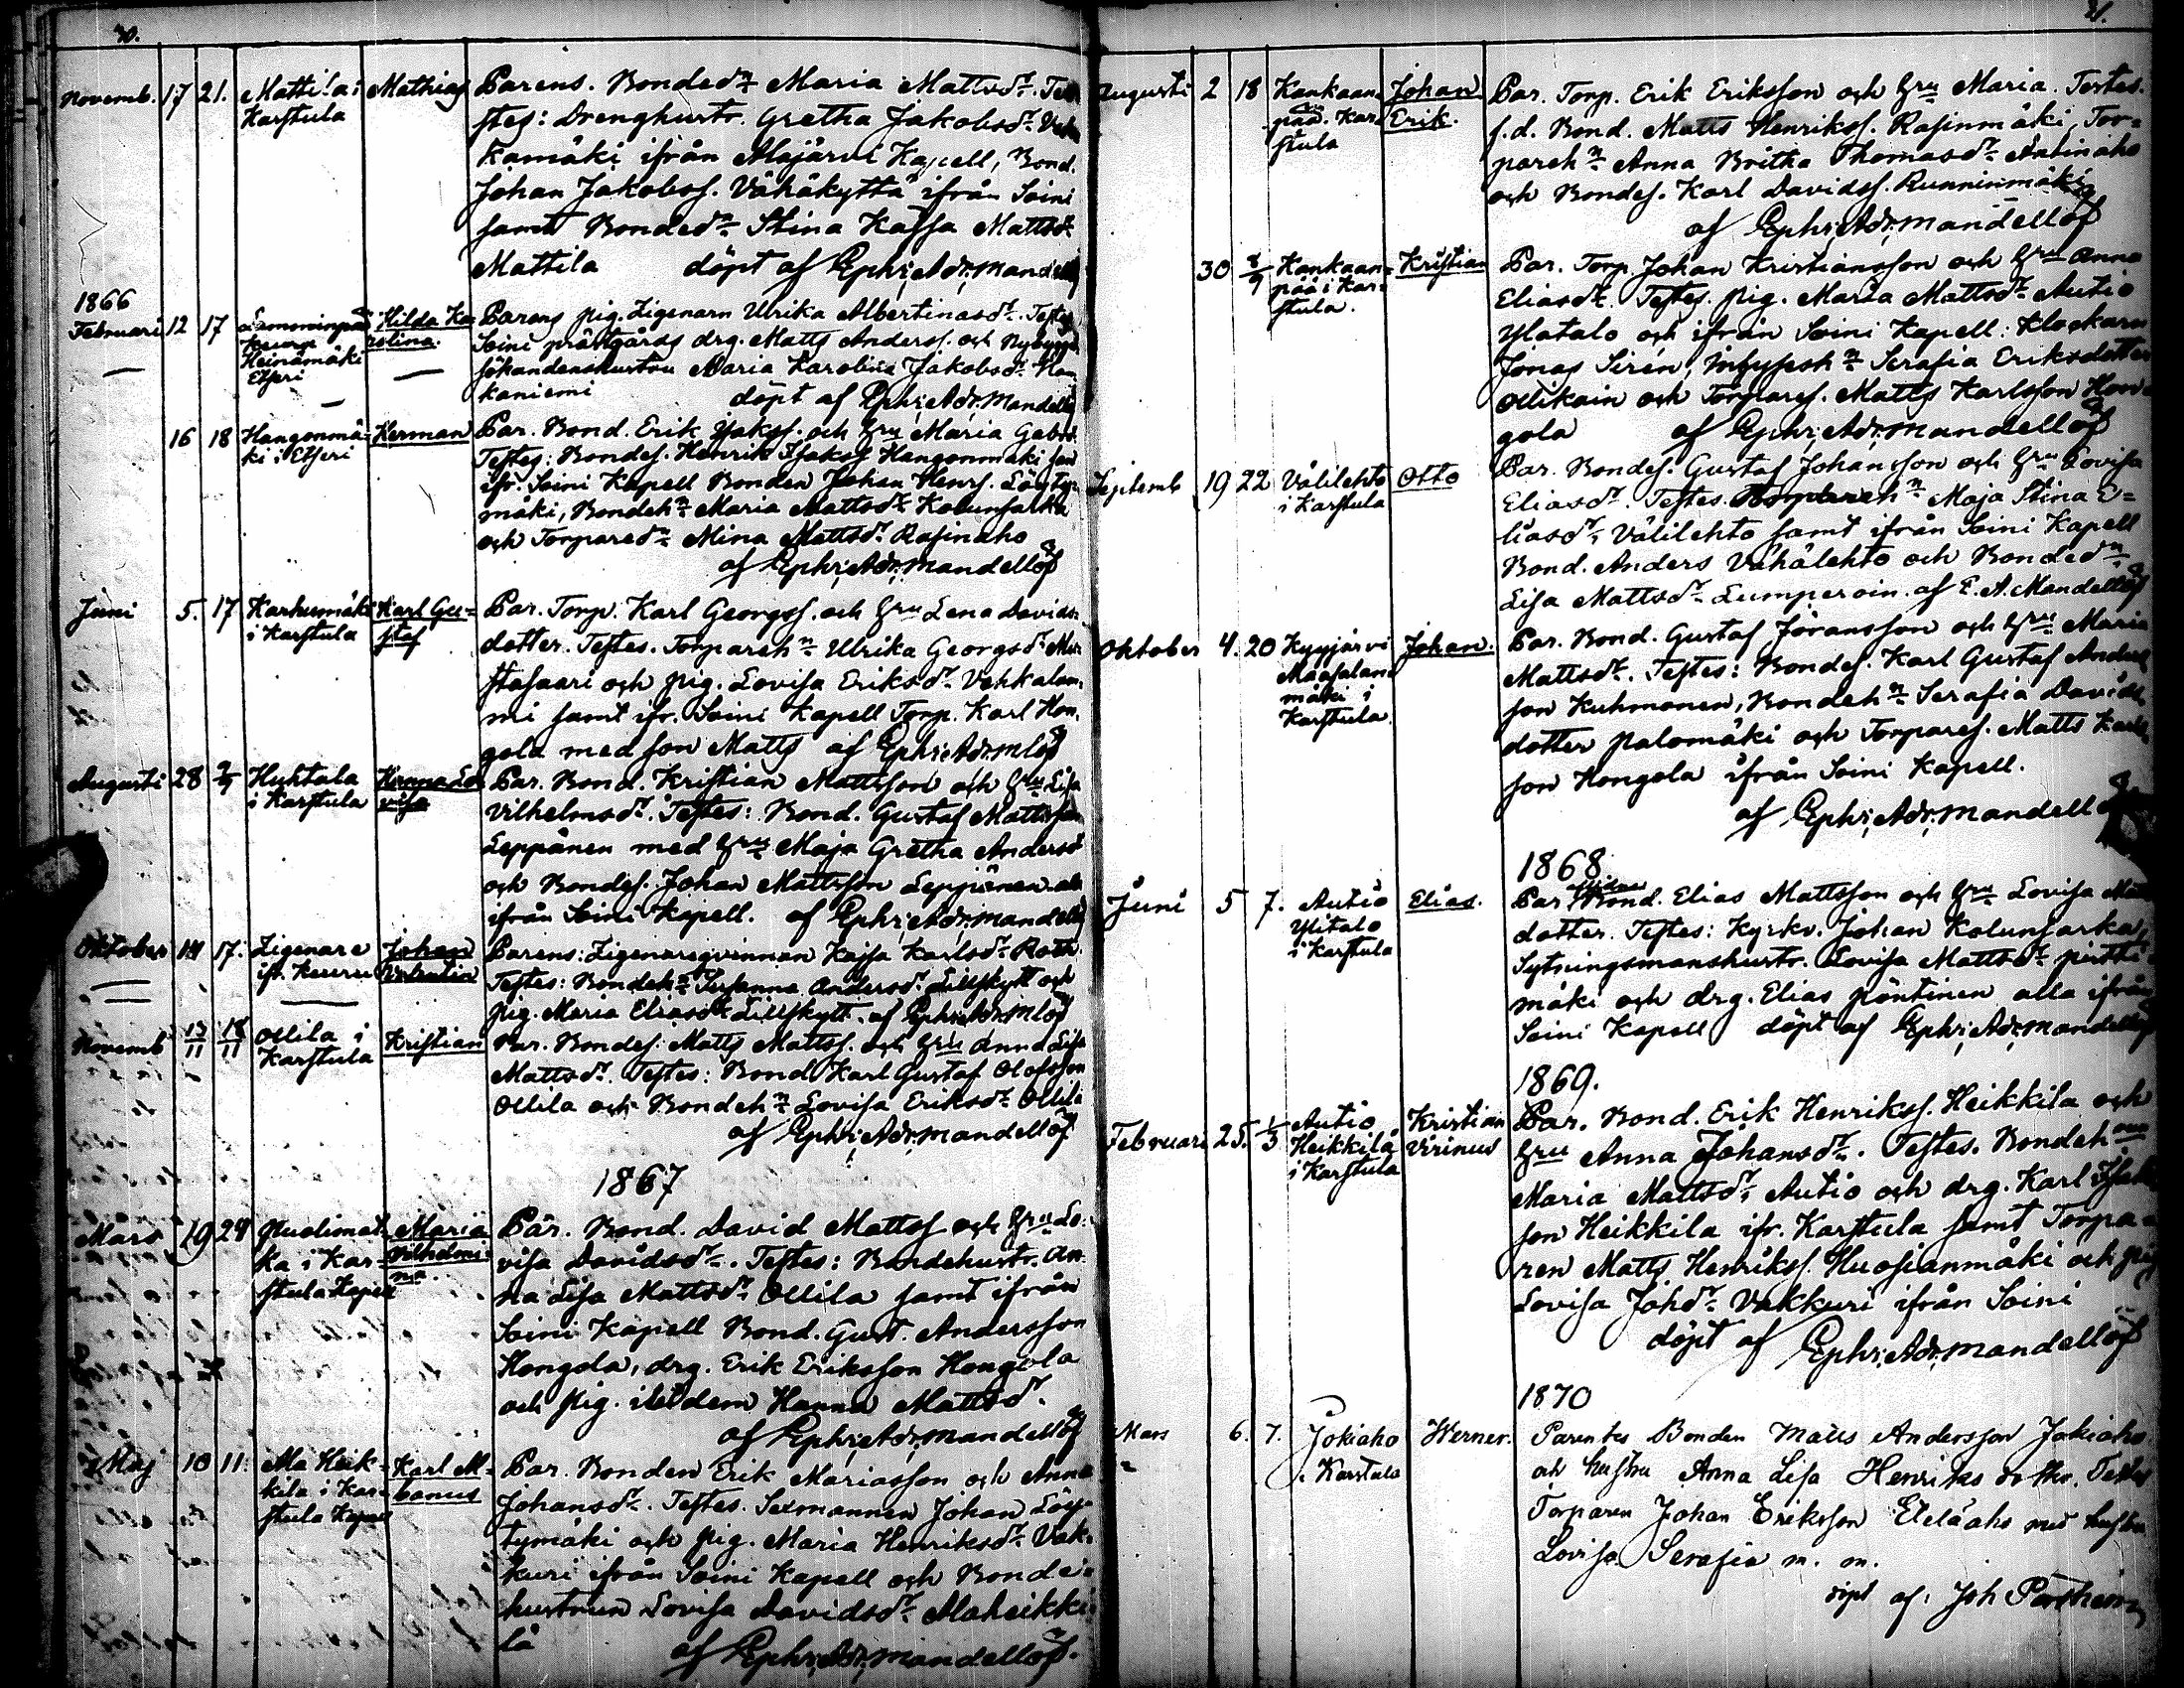 30.
Novemb. 17 21. Mattila i Mathias Parens. Bonded:r Maria Mattsd:r Tes
Karstula stes: Drenghustr. Gretha Jakobsd:r
kamäki ifrån Alajärvi Kapell, Bond.
Johan Jakobss. Vähäkyttä ifrån Soini
samt Bonded:r Stina Kajsa Mattsd:r
Mattila döpt af Ephr; Adr; Mandellöf
1866
Februari 12 17 Hilda Ka= Parens pig. Zigenarn Ulrika Albertinasd:r Testes
Keuru rolina. Soini prästgårds drg. Matts Anderss. och Nybygg
Heinämäki sökandenshustru Maria Karolina Jakobsd:r
Etseri kaniemi döpt af Ephr; Adr; Mandellöf
16 18 Hangonmä= Herman Par. Bond. Erik Isakss. och Hru Maria Gabrd.
ki i Etseri Testes: Bondes. Henrik Isakss. Hangonmäki sam
ifr. Soini Kapell Bonden Johan Henrs. Löyty=
mäki, Bondeh:n Maria Mattsd:r Kolunsarka
och Torpared:r Mina Mattsd:r Rasinaho
af Ephr; Adr; Mandellöf
Juni 5. 17 Karhumäki Karl Gu= Par. Torp. Karl Georgss. och Hru Lena Davids=
i Karstula staf dotter. Testes. Torpareh:n Ulrika Georgsd:r Mu
stasaari och pig. Lovisa Eriksd:r Vehkalam
mi samt ifr. Soini Kapell Torp. Karl Hon
gola med son Matts af Ephr; Adr; Mlöf
Augusti 28 2/9 Huhtala Hanna Lo= Par. Bond. Kristian Mattsson och Hru Lisa
i Karstula visa Vilhelmsd:r. Testes: Bond. Gustaf Mattsson
Leppänen med Hru Maja Gretha Andersd
och Bondes. Johan Mattsson Leppänen alla
ifrån Soini Kapell. af Ephr; Adr; Mandellöf
Oktober 14 17. Zigenare Johan Parens: Zigenareqvinnan Kajsa Karlsd:r Roth.
ifr. Keuru Valentin Testes: Bondeh:n Susanna Andersd:r Lillkytt och
pig. Maria Eliasd:r Lillkytt. af Ephr; Adr; Mlöf
Novemb 13/11 18/11 Ollila i Kristian Par. Bondes. Matts Mattss. och Hru Anna Lisa
Karstula Mattsd:r. Testes: Bond Karl Gustaf Olofsson
Ollila och Bondeh:n Lovisa Eriksd:r Ollila
af Ephr; Adr; Mandellöf
1867
Mars 19 24 Maria Par. Bond. David Mattss och Hru Lo=
ka i Kar= Vilhelmi= visa Davidsd:r. Testes: Bondehustr. An
stula Kapell na. na Lisa Mattsd:r Ollila samt ifrån
Soini Kapell Bond. Gust. Andersson
Hongola, drg. Erik Eriksson Hongola
och pig. ibidem Hanna Mattsd:r.
af Ephr; Adr; Mandellöf
Maj 10 11. Ala Heik= Karl Al= Par. Bonden Erik Mariasson och Anna
kila i Kar= banus Johansd:r. Testes. Sexmannen Johan Löy
stula Kapell tymäki och pig. Maria Henriksd:r Vak=
kuri ifrån Soini Kapell och Bonde=
hustrun Lovisa Davidsd:r Alaheikki
lä af Ephr; Adr; Mandellöf.
31.
Augusti 2 18 Kankaan= Johan Par. Torp. Erik Eriksson och Hru Maria. Testes.
pää. Kar= Erik. f.d. Bond. Matts Henrikss. Rasinmäki, Tor=
stula pareh:n Anna Britha Thomasd:r Antinaho
och Bondes. Karl Davidss. Runninmäki
af Ephr; Adr; Mandellöf
30 8/9 Kankaan= Kristian Par. Torp. Johan Kristiansson och Hru Anna
pää i Kar= Eliasd:r. Testes. pig. Maria Mattsd:r Autio
stula. Ylitalo och ifrån Soini Kapell: Klockarn
Jonas Sirén, Inhysesh:n Serafia Eriksdotter
Ollikain och Torpares. Matts Karlsson Hon
gola af Ephr; Adr; Mandellöf
Septemb 19 22 Välilehto Otto Par. Bondes. Gustaf Johansson och Hru Lovisa
i Karstula Eliasd:r. Testes. Torpareh:n Maja Stina E=
liasd:r Välilehto samt ifrån Soini Kapell
Bond. Anders Vähälehto och Bonded:n
Lisa Mattsd:r Lumperoin. af E. A. Mandellöf
Oktober 4. 20 Kyyjärvi Johan. Par. Bond. Gustaf Jöransson och Hru Maria
Maasalan= Mattsd:r. Testes: Bondes. Karl Gustaf Anders
mäki i son Kuhmonen, Bondeh:n Serafia Davids
Karstula. dotter Palomäki och Torpares. Matts Karls
son Hongola ifrån Soini Kapell.
af Ephr; Adr; Mandellöf
1868.
Juni 5 7. Autio Elias. Par. Bond. Elias Mattsson och Hru Lovisa
Ylitalo dotter. Testes: Kyrkv. Johan Kolunsarka,
i Karstula Sytningsmanshustr. Lovisa Mattsd:r Pirtti
mäki och drg. Elias Pöntinen alla ifrån
Soini Kapell döpt af Ephr; Adr; Mandellöf
1869.
Februari 25. 1/3 Autio Kristian Par. Bond. Erik Henrikss. Heikkila och
Heikkilä Virinus Hru Anna Johansd:r. Testes. Bondeh
i Karstula Maria Mattsd:r Autio och drg. Karl Isaks
son Heikkila ifr. Karstula samt Torpa=
ren Matts Henrikss. Huosianmäki och pig
Lovisa Johd:r Vakkuri ifrån Soini
döpt af Ephr; Adr; Mandellöf
1870
Mars 6. 7. Jokiaho Werner. Parentes Bonden Matts Andersson Jokiaho
i Karstula och hustru Anna Lisa Henriks dotter. Testes
Torparen Johan Eriksson Eteläaho med hustru
Lovisa Serafia m. m.
döpt af: Joh